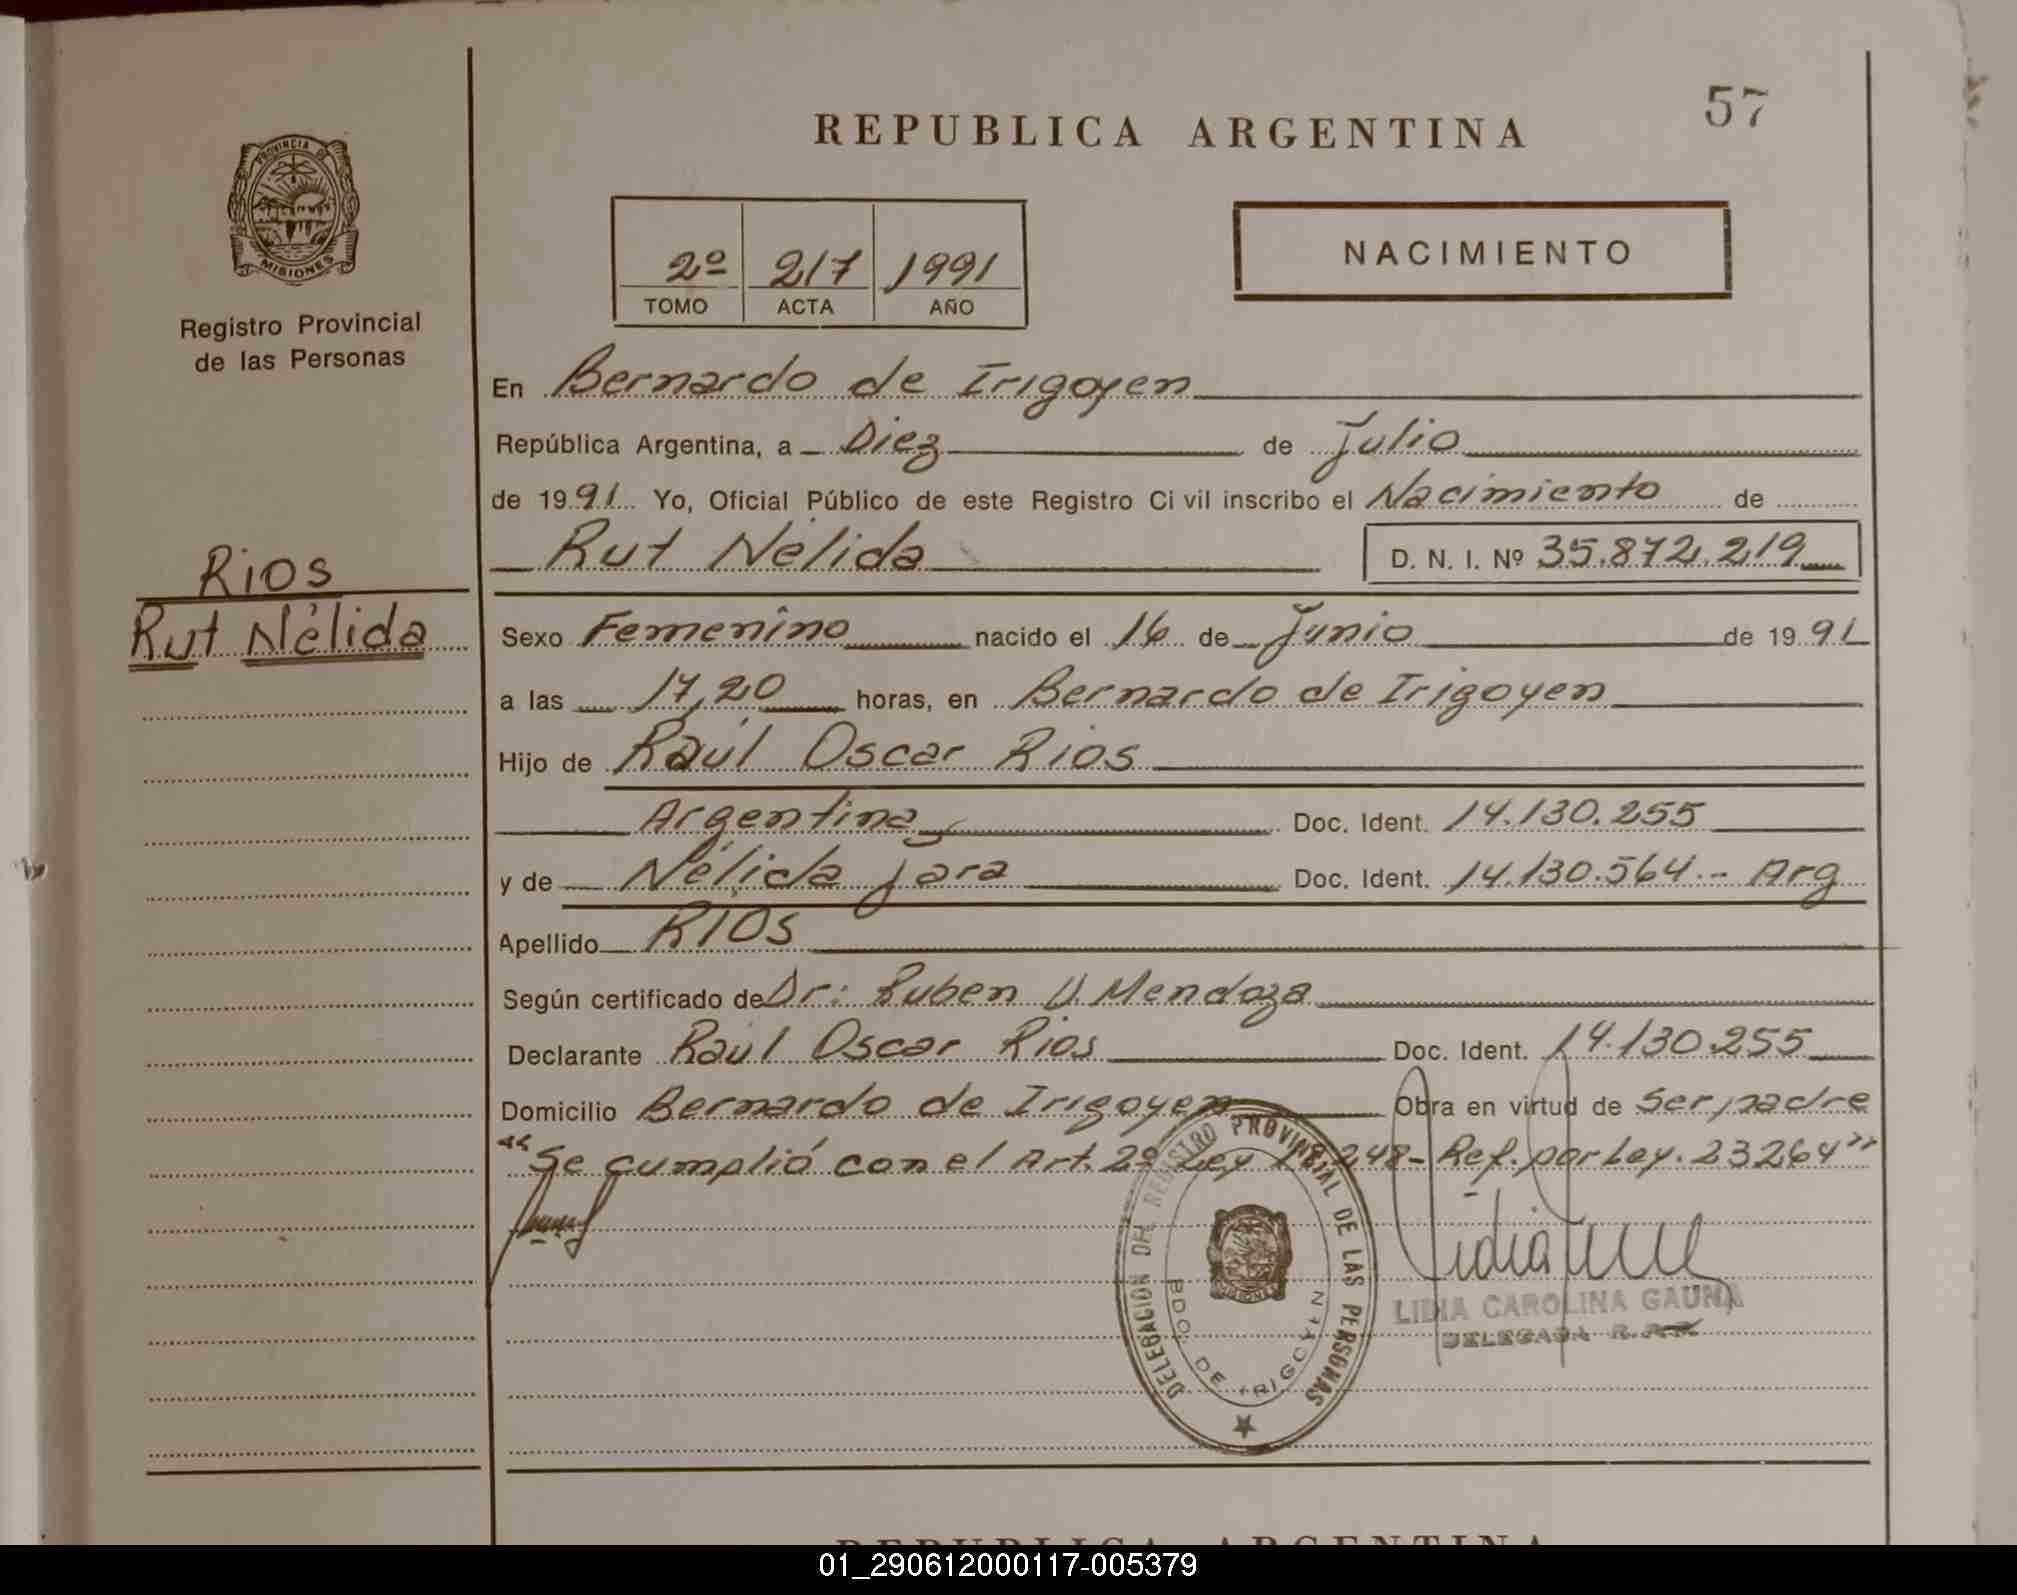 57
REPUBLICA ARGENTINA
PROVINCIA DE
MISIONES
Registro Provincial
de las Personas
2º 217 1991
TOMO ACTA AÑO
NACIMIENTO
En Bernardo de Irigoyen
República Argentina, a Diez de Julio
de 1991 Yo, Oficial Público de este Registro Civil inscribo el Nacimiento de
Rut Nélida D. N. I. Nº 35.872.219
Rios
Rut Nélida
Sexo Femenino nacido el 16 de Junio de 1991
a las 17,20 horas, en Bernardo de Irigoyen
Hijo de Raúl Oscar Rios
Argentina Doc. Ident. 14.130.255
y de Nélida Jara Doc. Ident. 14.130.564.- Arg
Apellido RIOS
Según certificado de Dr: Ruben Mendoza
Declarante Raúl Oscar Rios Doc. Ident. 14.130.255
Domicilio Bernardo de Irigoyen Obra en virtud de ser padre
"Se cumplió con el Art. 2º Ley 18.248- Ref. por Ley. 23264"
DELEGACION DEL REGISTRO PROVINCIAL DE LAS PERSONAS
BDO. DE IRIGOYEN
MISIONES
LIDIA CAROLINA GAUNA
DELEGADA
REPUBLICA ARGENTINA
01_290612000117-005379